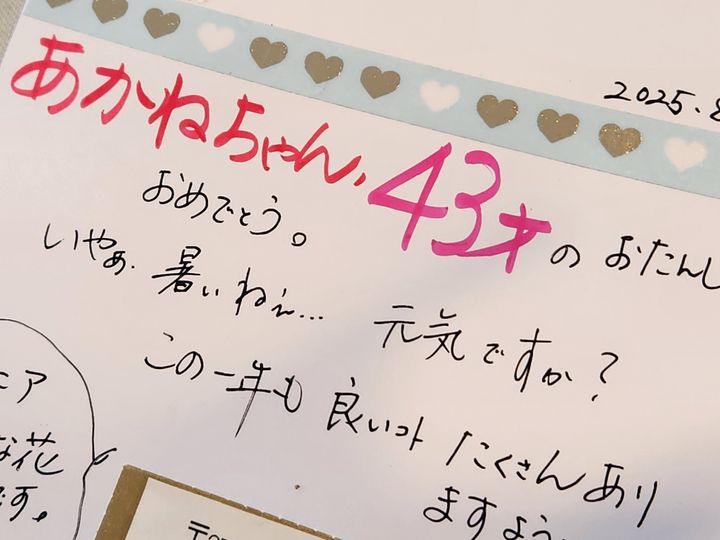 2025.8
あかねちゃん、43才のおたんし
おめでとう。
いやぁ、暑いねぇ… 元気ですか?
この一年も良いコトたくさんあり
ますよう
ニア
な花
です。
〒